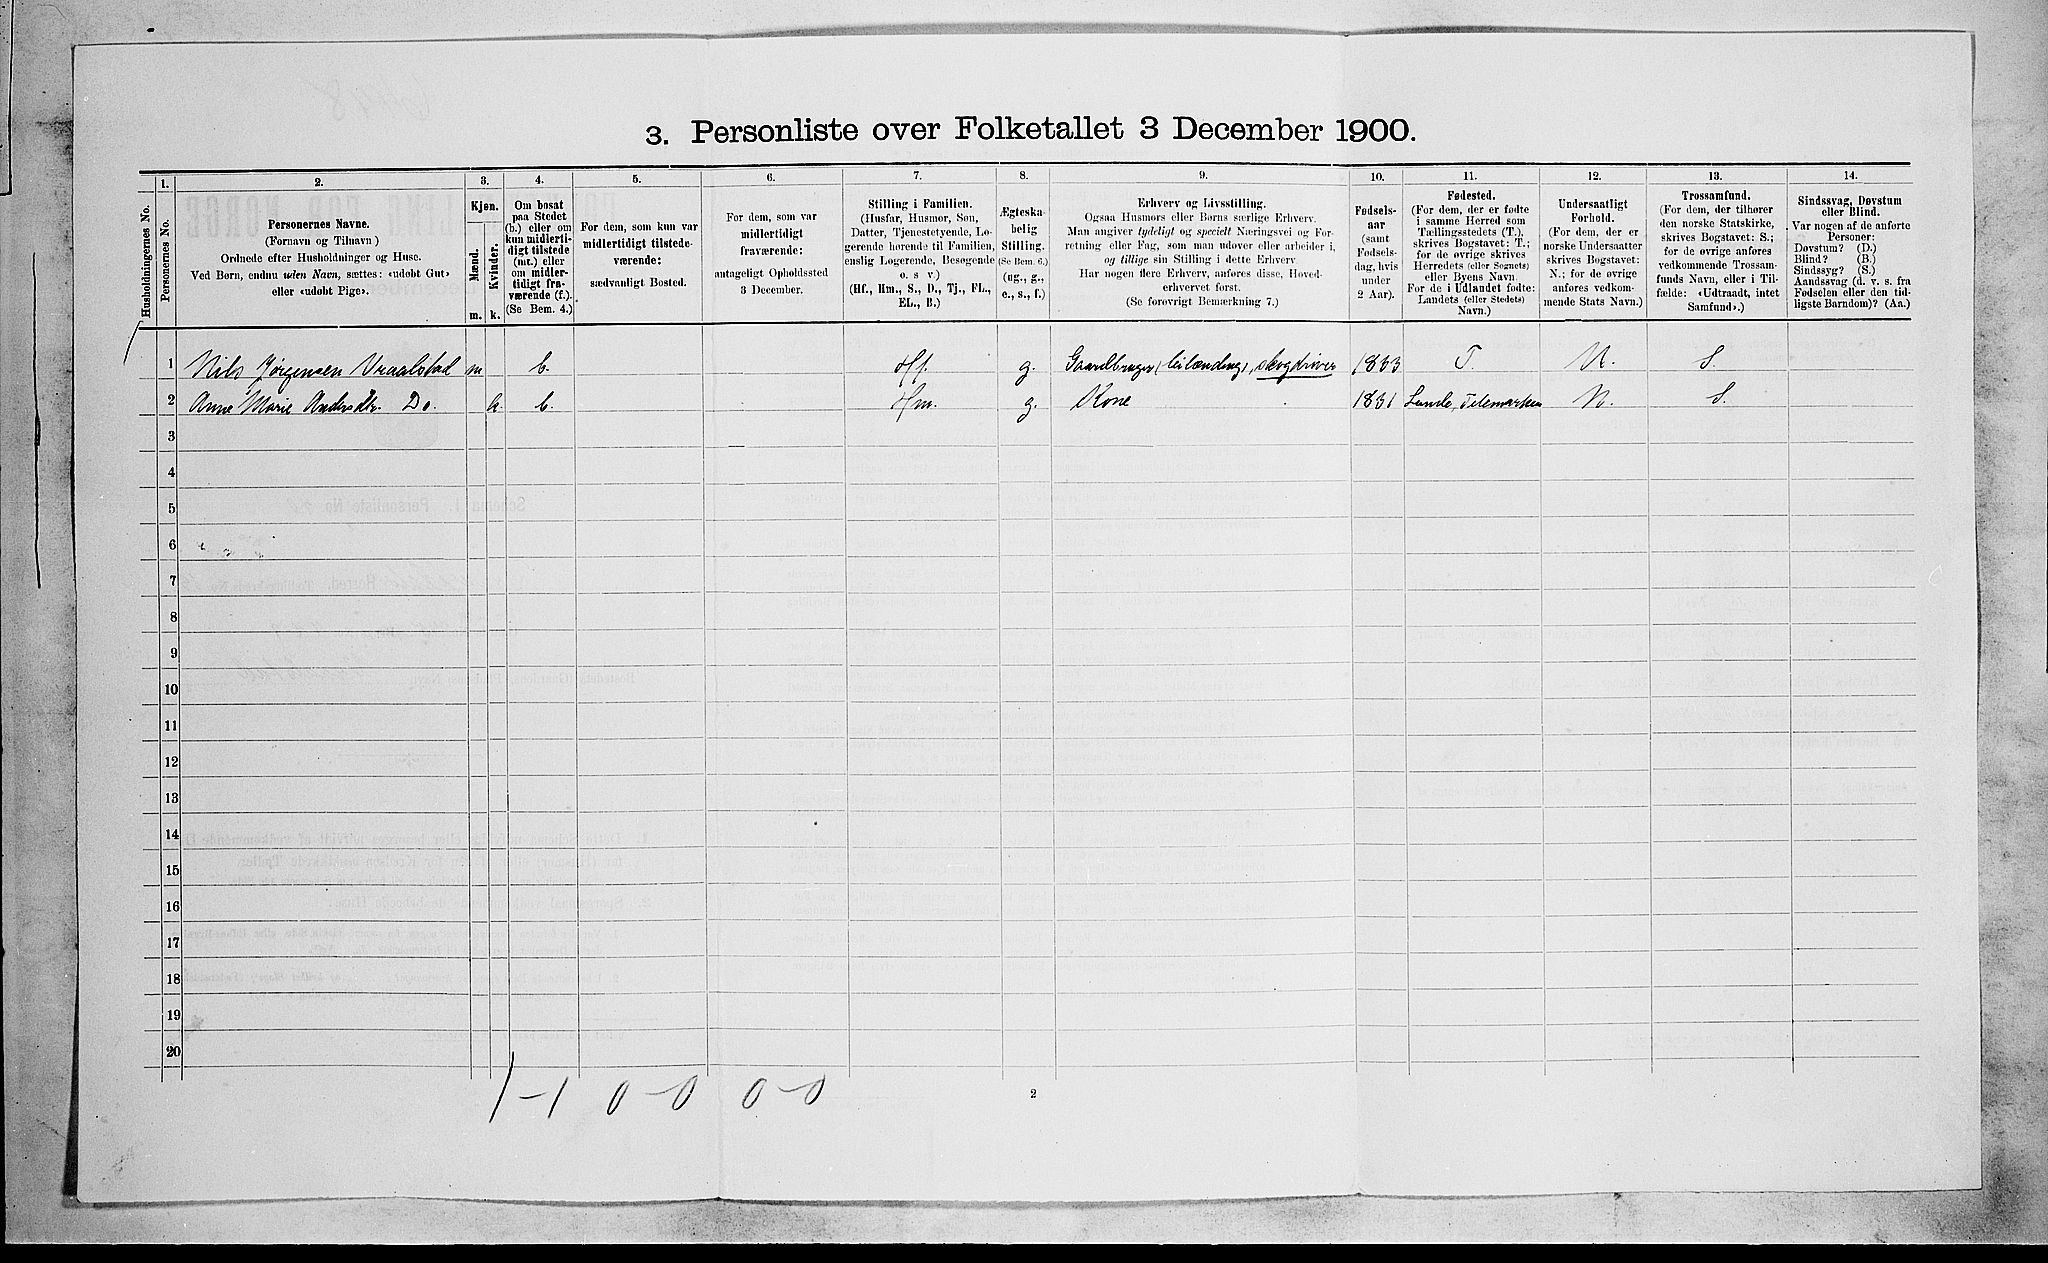 3. Personliste over Folketallet 3 December 1900.
Husholdningernes No.
1.
Personernes No.
2.
Personernes Navne.
(Fornavn og Tilnavn)
Ordnede efter Husholdninger og Huse.
Ved Børn, endnu uden Navn, sættes: «udøbt Gut»
eller «udøbt Pige».
3.
Kjøn.
Mænd.
Kvinder.
m. k.
4.
Om bosat
paa Stedet
(b.) eller om
kun midlerti-
digt tilstede
(mt.) eller
om midler-
tidigt fra-
værende (f.).
(Se Bem. 4.)
5.
For dem, som kun var
midlertidigt tilstede-
værende:
sædvanligt Bosted.
6.
For dem, som var
midlertidigt
fraværende:
antageligt Opholdssted
3 December.
7.
Stilling i Familien.
(Husfar, Husmor, Søn,
Datter, Tjenestetyende, Lo-
gerende hørende til Familien,
enslig Logerende, Besøgende
o. s v.)
(Hf., Hm., S., D., Tj., FL.,
EL., B.)
8.
Ægteska-
belig
Stilling.
(Se Bem. 6.)
(ug., g.,
e., s., f.)
9.
Erhverv og Livsstilling.
Ogsaa Husmors eller Børns særlige Erhverv.
Man angiver tydeligt og specielt Næringsvei og For-
retning eller Fag, som man udøver eller arbeider i,
og tillige sin Stilling i dette Erhverv.
Har nogen flere Erhverv, anføres disse, Hoved-
erhvervet først.
(Se forøvrigt Bemærkning 7.)
10.
Fødsels-
aar
(samt
Fødsels-
dag, hvis
under
2 Aar).
11.
Fødested.
(For dem, der er fødte
i samme Herred som
Tællingsstedets (T.),
skrives Bogstavet: T.;
for de øvrige skrives
Herredets (eller Sognets)
eller Byens Navn.
For de i Udlandet fødte:
Landets (eller Stedets)
Navn.)
12.
Undersaatligt
Forhold.
(For dem, der er
norske Undersaatter
skrives Bogstavet:
N.; for de øvrige
anføres vedkom-
mende Stats Navn.)
13.
Trossamfund.
(For dem, der tilhører
den norske Statskirke,
skrives Bogstavet: S.;
for de øvrige anføres
vedkommende Trossam-
funds Navn, eller i Til-
fælde: «Udtraadt, intet
Samfund».)
14.
Sindssvag, Døvstum
eller Blind.
Var nogen af de anførte
Personer:
Døvstum? (D.)
Blind? (B.)
Sindssyg? (S.)
Aandssvag (d. v. s. fra
Fødselen eller den tid-
ligste Barndom)? (Aa.)
1 Nils Jørgensen Vraalstad m b. Hf. g. Gaardbruger (leilænding), skogdriver 1833 T. N. S.
2 Anne Marie Andersdtr. Do. k. b. Hm. g. Kone 1831 Lunde, Telemarken N. S.
3
4
5
6
7
8
9
10
11
12
13
14
15
16
17
18
19
20
1-1 0-0 0-0
2